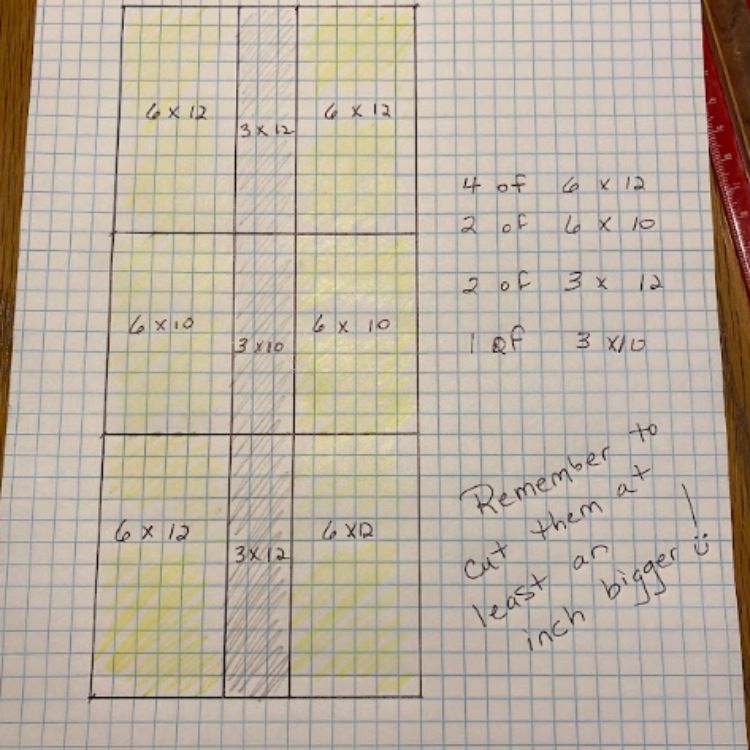 6 x 12
3 x 12
6 x 12
6 x 10
3 x 10
6 x 10
6 x 12
3 x 12
6 x 12
4 of 6 x 12
2 of 6 x 10
2 of 3 x 12
1 of 3 x 10
Remember to
cut them at
least an
inch bigger!